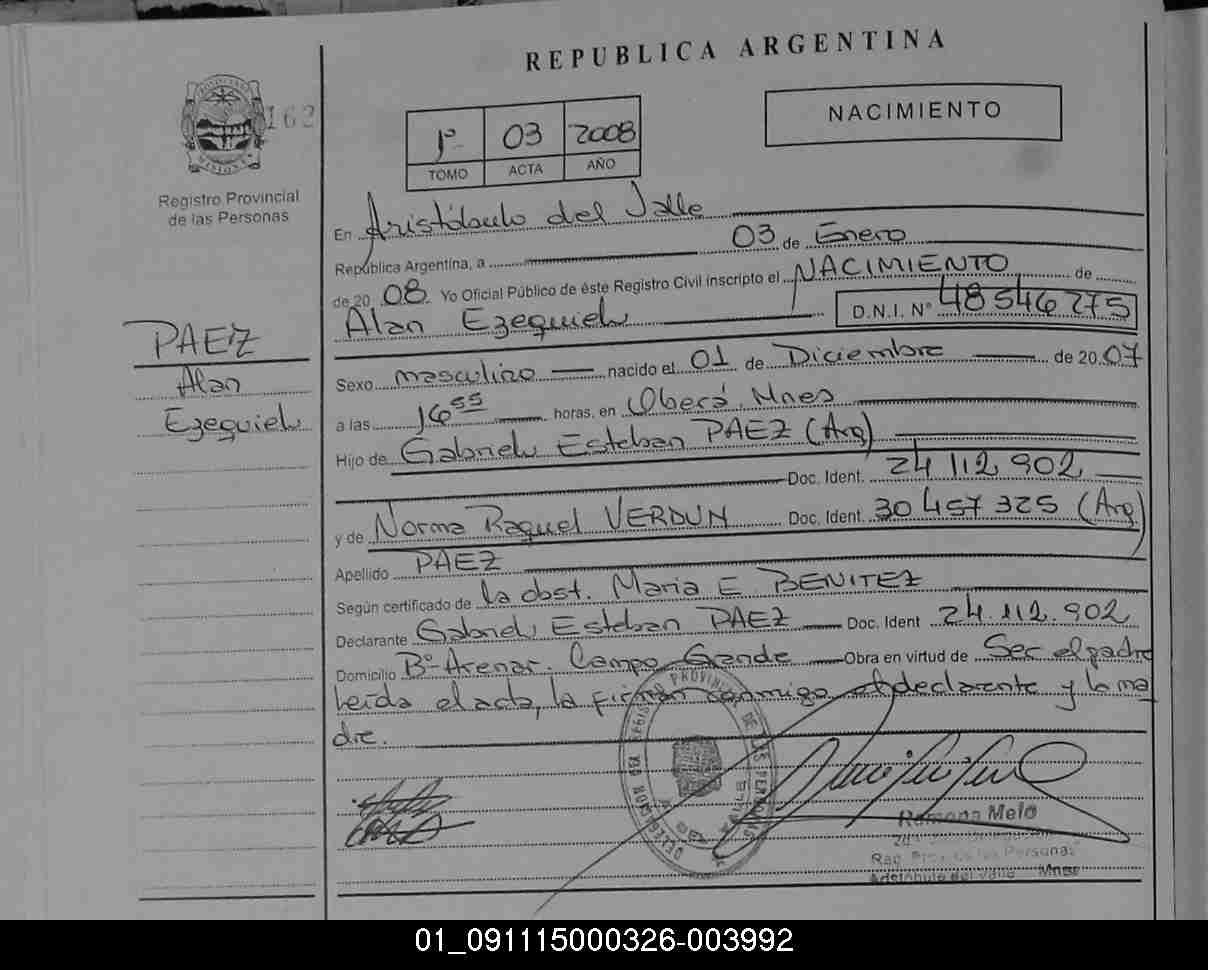 REPUBLICA ARGENTINA
162
MISIONES
Registro Provincial
de las Personas
1º 03 2008
TOMO ACTA AÑO
NACIMIENTO
En Aristóbulo del Valle
República Argentina, a 03 de Enero
de 20 08 Yo Oficial Público de éste Registro Civil inscripto el NACIMIENTO de
Alan Ezequiel D.N.I. Nº 48546275
PAEZ
Alan
Ezequiel
Sexo masculino nacido el 01 de Diciembre de 20 07
a las 16 55 horas, en Oberá, Mnes
Hijo de Gabriel Esteban PAEZ (Arg)
Doc. Ident. 24 112 902
y de Norma Raquel VERDUN Doc. Ident. 30 457 325 (Arg)
Apellido PAEZ
Según certificado de la obst. Maria E BENITEZ
Declarante Gabriel Esteban PAEZ Doc. Ident 24.112.902
Domicilio Bº Arenar. Campo Grande Obra en virtud de Ser el padre
Leída el acta, la firman conmigo el declarante y la ma
dre.
Ramona Melo
Reg. Prov. de las Personas
Aristóbulo del Valle Mnes
01_091115000326-003992